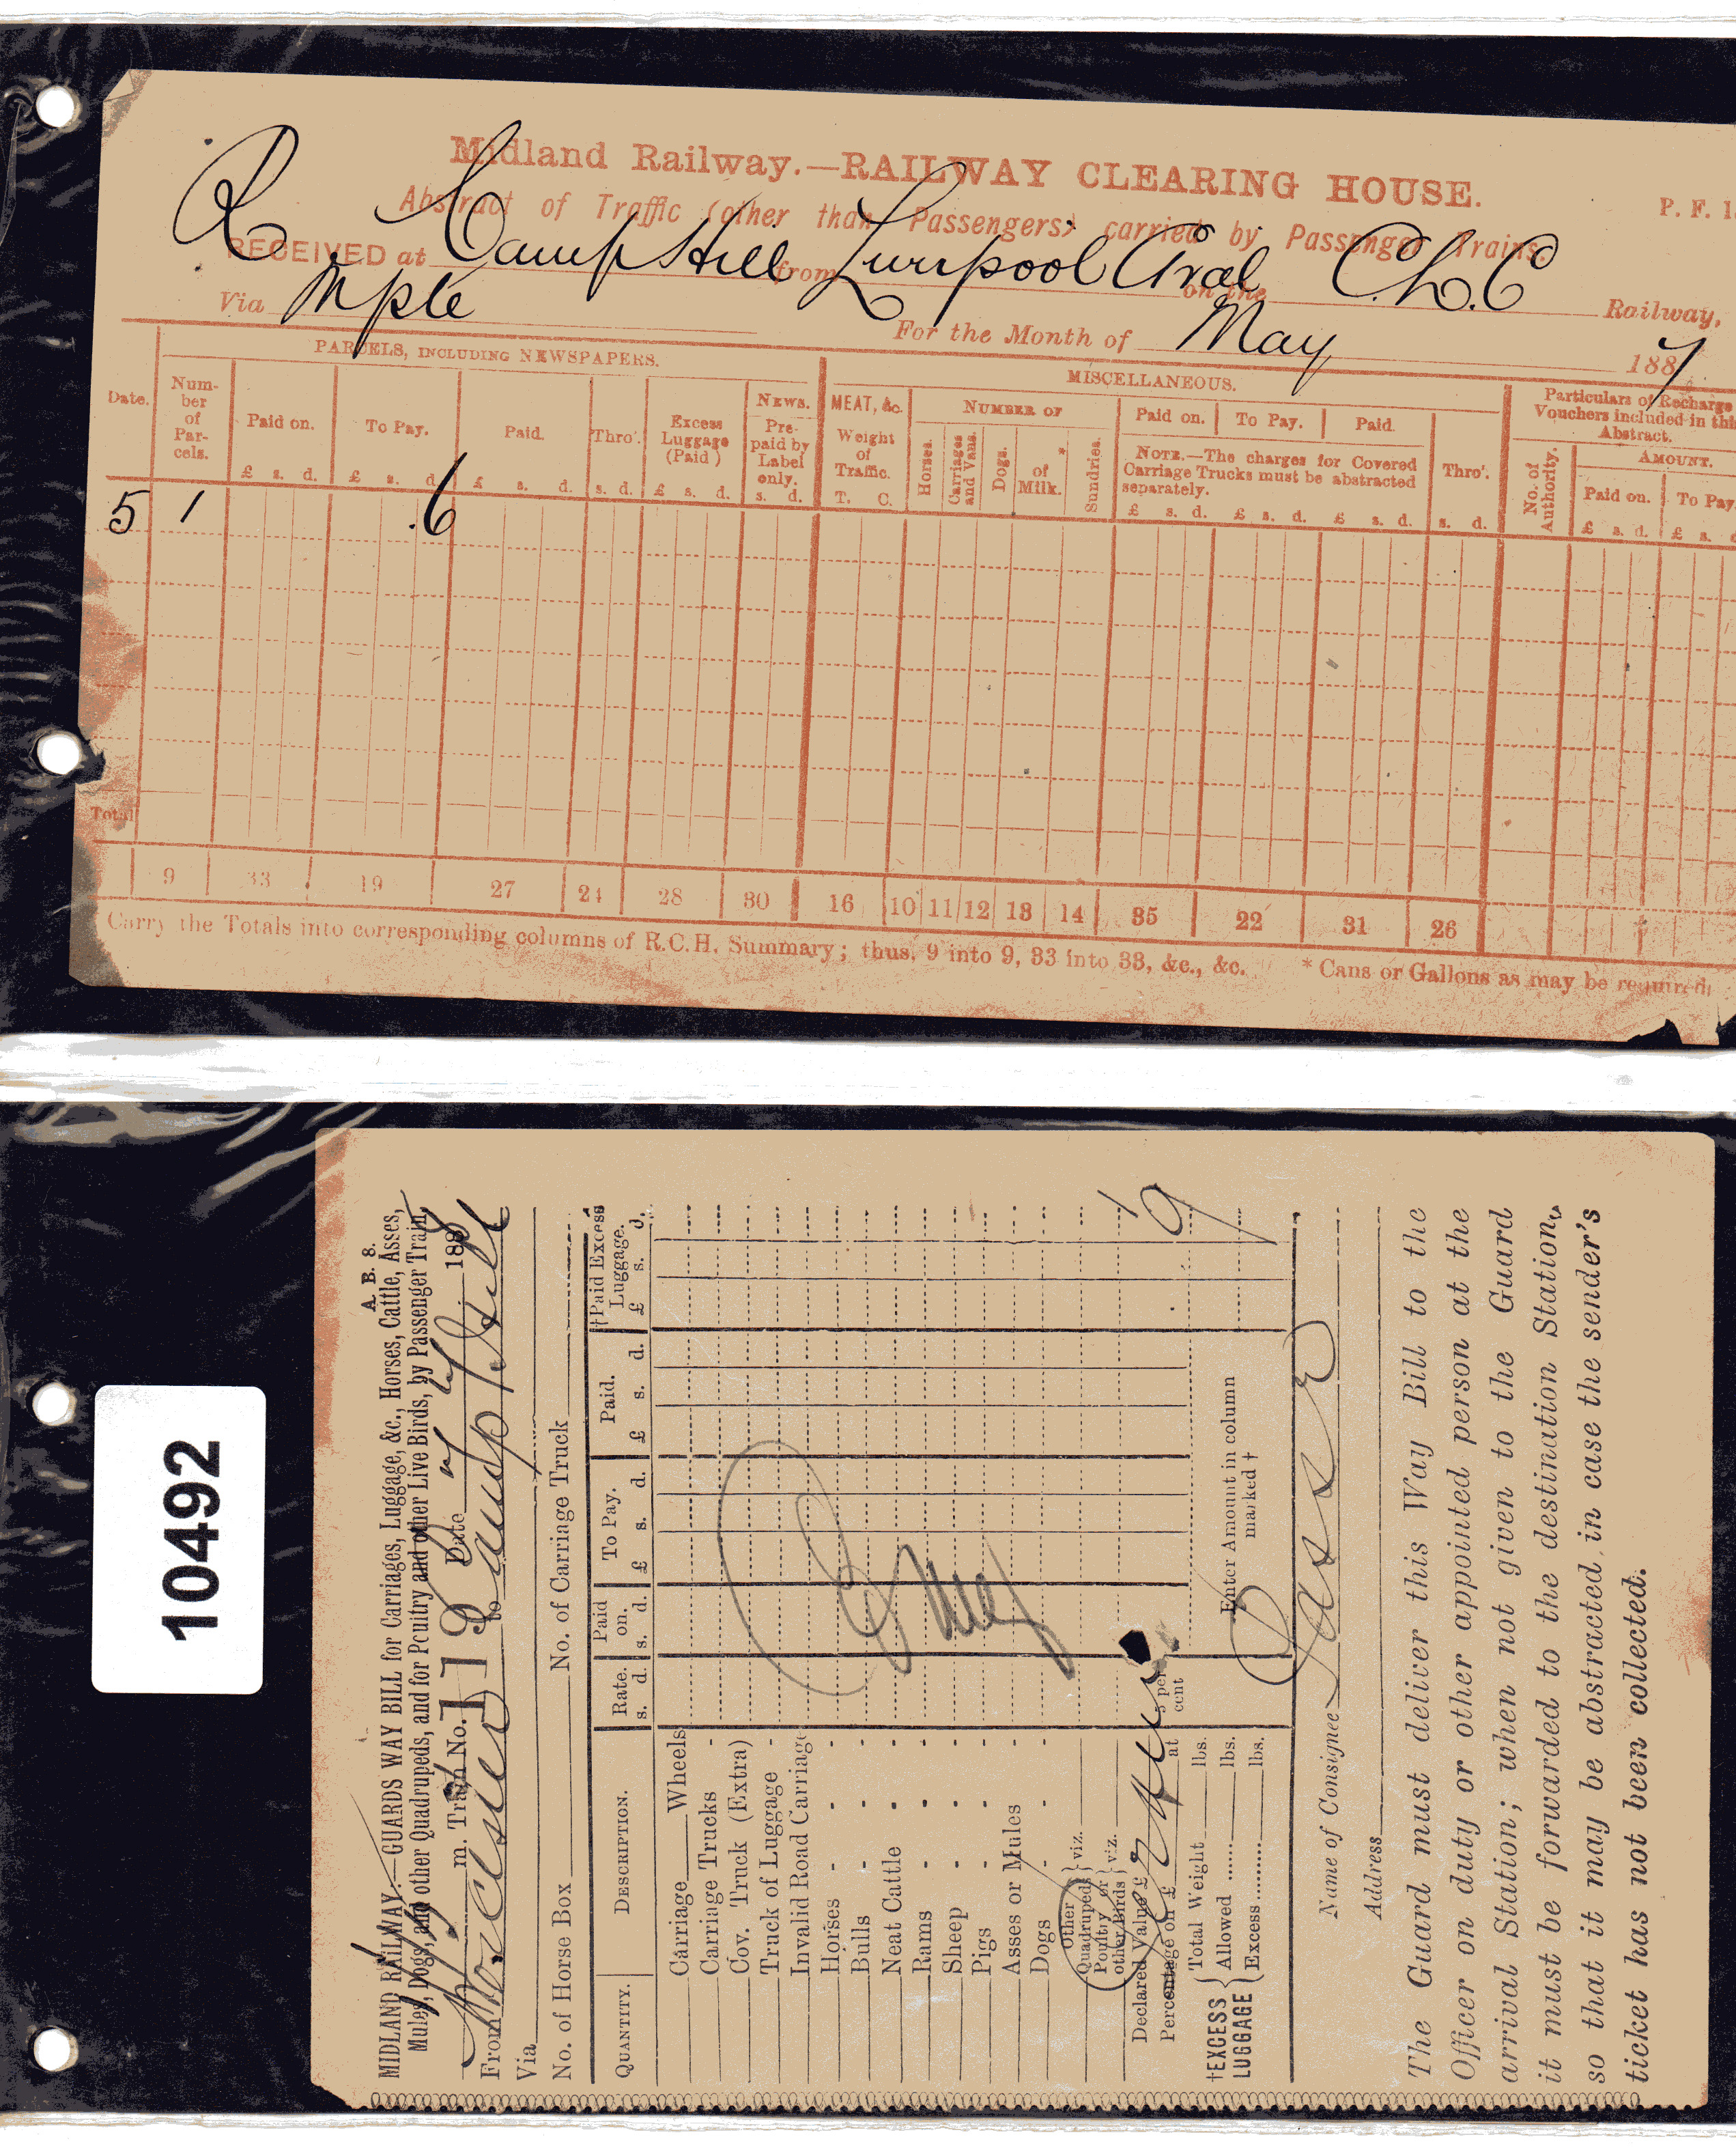 Midland Railway.—RAILWAY CLEARING HOUSE.
P. F. 1
Abstract of Traffic (other than Passengers) carried by Passenger Trains.
R
RECEIVED at Camp Hill from Liverpool Cral on the Ch. C Railway,
Via Mple For the Month of May 1887
PARCELS, INCLUDING NEWSPAPERS.
MISCELLANEOUS.
Particulars of Recharge Vouchers included in this Abstract.
Date.
Number of Parcels.
Paid on. £ s. d.
To Pay. £ s. d.
Paid. £ s. d.
Thro'. s. d.
Excess Luggage (Paid) £ s. d.
NEWS. Prepaid by Label only. s. d.
MEAT, &c. Weight of Traffic. T. C.
NUMBER OF
Horses.
Carriages and Vans.
Dogs.
* of Milk.
Sundries.
Paid on. To Pay. Paid
NOTE.—The charges for Covered Carriage Trucks must be abstracted separately.
£ s. d. £ s. d. £ s. d.
Thro'. s. d.
No. of Authority.
AMOUNT.
Paid on. £ s. d.
To Pay. £ s.
5 1 .6
Total
9 33 19 27 24 28 30 16 10 11 12 13 14 35 22 31 26
Carry the Totals into corresponding columns of R.C.H. Summary; thus, 9 into 9, 33 into 33, &c., &c. * Cans or Gallons as may be required
10492
A. B. 8.
MIDLAND RAILWAY.—GUARDS WAY BILL for Carriages, Luggage, &c., Horses, Cattle, Asses,
Mules, Dogs, and other Quadrupeds, and for Poultry and other Live Birds, by Passenger Train,
m. Train No. 119 Date 188
From Worcester to Camp Hill
Via
No. of Horse Box No. of Carriage Truck
QUANTITY. DESCRIPTION. Rate. s. d. Paid on. s. d. To Pay. £ s. d. Paid. £ s. d. †Paid Excess Luggage. £ s. d.
Carriage Wheels
Carriage Trucks
Cov. Truck (Extra)
Truck of Luggage
Invalid Road Carriage
Horses
Bulls
Neat Cattle
Rams
Sheep
Pigs
Asses or Mules
Dogs
Other Quadrupeds } viz.
Poultry or other Birds } viz.
Declared Value £
Percentage on £ at 5 per cent
1/9
†EXCESS LUGGAGE { Total Weight lbs.
Allowed lbs.
Excess lbs.
Enter Amount in column marked †
Name of Consignee Passr
Address
The Guard must deliver this Way Bill to the
Officer on duty or other appointed person at the
arrival Station; when not given to the Guard
it must be forwarded to the destination Station,
so that it may be abstracted in case the sender's
ticket has not been collected.